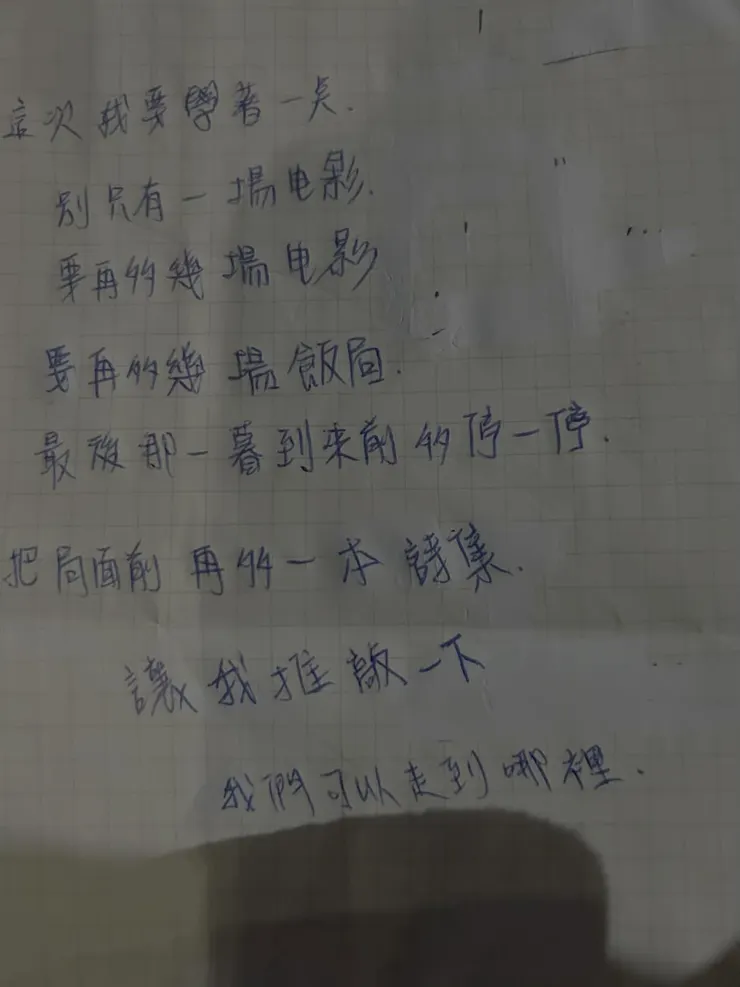 這次我要學著一点.
別只有一場电影.
要再多幾場电影
要再多幾場飯局.
最後那一暮到來前多停一停.
把局面前再多一本詩集.
讓我推敲一下
我們可以走到哪裡.